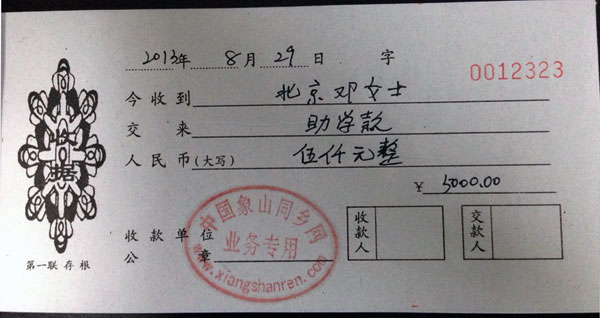 2013年 8月 29日 字
0012323
今收到 北京邓女士
交来 助学款
人民币(大写) 伍仟元整
¥ 5000.00
收据
收款单位公章
中国象山同乡网
业务专用
www.xiangshanren.com
收款人
交款人
第一联存根